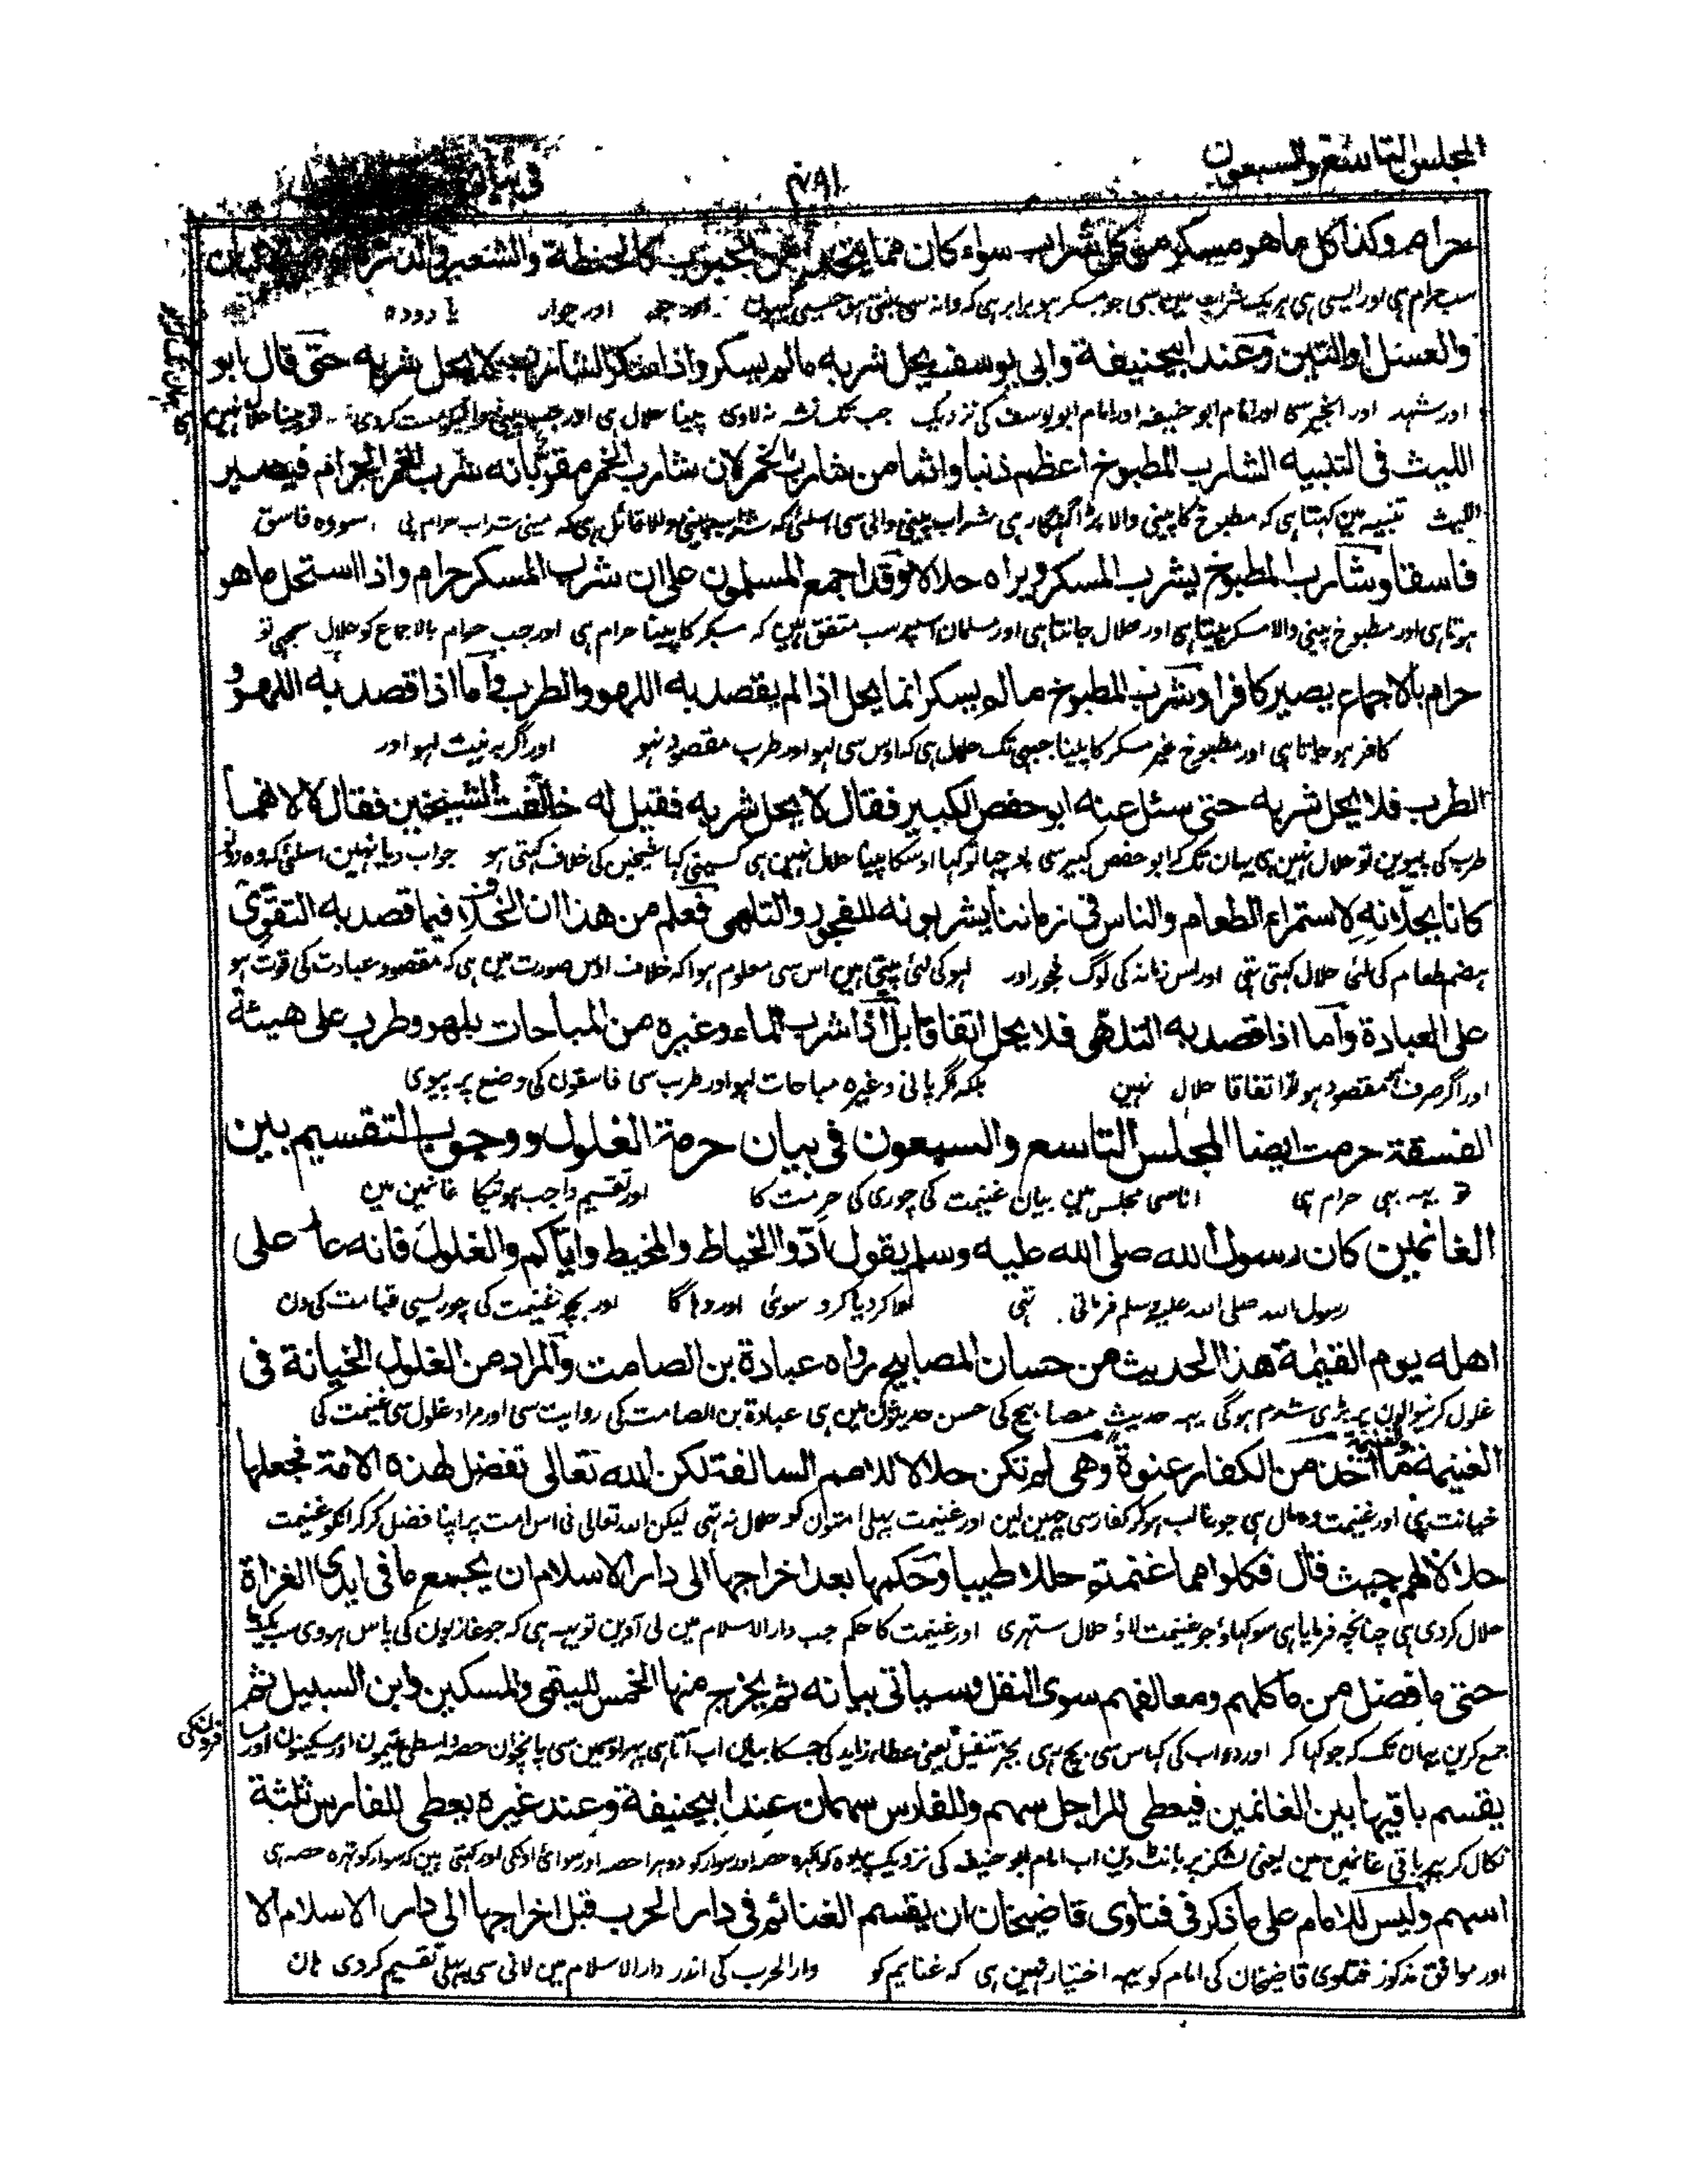 المجلس التاسع والسبعون
۴۸۱
فى بيان
حرام وكذا كل ما هو مسكر من كل شراب سواء كان مما يتخذ من الحبوب كالحنطة والشعير والذرة
سب حرام ہی اور ایسی ہی ہر یک شراب مین سی جو مسکر ہو برابر ہی کہ دانہ سی بنتی ہو جیسی گیہون اور جو اور جوار یا دودہ
والعسل او التين وعند ابيحنيفة وابى يوسف يحل شربه مالم يسكر واذا اسكر الشارب لا يحل شربه حتى قال ابو
اور شہد اور انجیر سی اور امام ابو حنیفہ اور امام ابو یوسف کی نزدیک جب تک نشہ نہ لاوی پینا حلال ہی اور جب پینی والیکو مست کردی تو پینا حلال نہین
الليث فى التنبيه الشارب المطبوخ اعظم ذنبا واثما من شارب الخمر لان شارب الخمر مقر بانه شرب الخمر الحرام فيصير
اللیث تنبیہ مین کہتا ہی کہ مطبوخ کا پینی والا بڑا گنہگار ہی شراب پینی والی سی اسلئی کہ شراب پینی والا قائل ہی کہ مینی شراب حرام پی سو وہ فاسق
فاسقا وشارب المطبوخ يشرب المسكر ويراه حلالا وقد اجمع المسلمون على ان شرب المسكر حرام واذا استحل ما هو
ہوتا ہی اور مطبوخ پینی والا مسکر پیتا ہی اور حلال جانتا ہی اور مسلمان اسپر سب متفق ہین کہ مسکر کا پینا حرام ہی اور جب حرام بالاجماع کو حلال سمجہی تو
حرام بالاجماع يصير كافرا وشرب المطبوخ مالم يسكر انما يحل اذا لم يقصد به اللهو والطرب واما اذا قصد به اللهو و
کافر ہو جاتا ہی اور مطبوخ غیر مسکر کا پینا جبہی تک حلال ہی کہ اوس سی لہو اور طرب مقصود نہو اور اگر بہ نیت لہو اور
الطرب فلا يحل شربه حتى سئل عنه ابو حفص الكبير فقال لا يحل شربه فقيل له خالفت الشيخين فقال لا لانهما
طرب کی پیوین تو حلال نہین ہی یہان تک کہ ابو حفص کبیر سی پوچہا تو کہا اوسکا پینا حلال نہین ہی کسینی کہا شیخین کی خلاف کہتی ہو جواب دیا نہین اسلئی کہ وہ دونو
كانا يحلانه لاستمراء الطعام والناس فى زماننا يشربونه للفجور والتلهى فعلم من هذا ان الخلاف فيما قصد به التقوى
ہضم طعام کی لئی حلال کہتی تہی اور اس زمانہ کی لوگ فجور اور لہو کی لئی پیتی ہین اس سی معلوم ہوا کہ خلاف اوس صورت مین ہی کہ مقصود عبادت کی قوت ہو
على العبادة واما اذا قصد به التلهى فلا يحل اتفاقا بل اذا شرب الماء وغيره من المباحات بلهو وطرب على هيئة
اور اگر صرف لہو مقصود ہو تو اتفاقا حلال نہین بلکہ اگر پانی وغیرہ مباحات لہو اور طرب سی فاسقون کی وضع پر پیوی
الفسقة حرمت ايضا المجلس التاسع والسبعون فى بيان حرمة الغلول ووجوب التقسيم بين
تو یہہ بہی حرام ہی اناسی مجلس مین بیان غنیمت کی چوری کی حرمت کا اور تقسیم واجب ہونیکا غانمین مین
الغانمين كان رسول الله صلى الله عليه وسلم يقول ادوا الخياط والمخيط واياكم والغلول فانه عار على
رسول اللہ صلی اللہ علیہ وسلم فرماتی تہی ادا کردیا کرو سوئی اور دہاگا اور بچو غنیمت کی چوریسی قیامت کی دن
اهله يوم القيمة هذا الحديث من حسان المصابيح رواه عبادة بن الصامت والمراد من الغلول الخيانة فى
غلول کرنیوالون پر بڑی شرم ہوگی یہہ حدیث مصابیح کی حسن حدیثون مین ہی عبادۃ بن الصامت کی روایت سی اور مراد غلول سی غنیمت کی
الغنيمة والغنيمة ما اخذ من الكفار عنوة وهى لم تكن حلالا للامم السالفة لكن الله تعالى تفضل لهذه الامة فجعلها
خیانت ہی اور غنیمت وہ مال ہی جو غالب ہو کر کفار سی چہین لین اور غنیمت پہلی امتون کو حلال نہ تہی لیکن اللہ تعالی نی اس امت پر اپنا فضل کر کر انکو غنیمت
حلالا لهم حيث قال فكلوا مما غنمتم حلالا طيبا وحكمها بعد اخراجها الى دار الاسلام ان يجمع ما فى ايدى الغزاة
حلال کردی ہی چنانچہ فرمایا ہی سو کہاؤ جو غنیمت لاؤ حلال ستہری اور غنیمت کا حکم جب دار الاسلام مین لی آوین تو یہہ ہی کہ جو غازیون کی پاس ہووی سب یکجا
حتى ما فضل من ماكلهم ومعالفهم سوى النفل وسياتى بيانه ثم يخرج منها الخمس لليتمى والمسكين وابن السبيل ثم
جمع کرین یہان تک کہ جو کہا کر اور دواب کی گہاس سی بچ رہی بجز تنفیل یعنی عطاء زاید کی جسکا بیان اب آتا ہی پہر اوسین سی پانچوان حصہ واسطی یتیمون اور مسکینون اور مسافرون کی
يقسم باقيها بين الغانمين فيعطى للراجل سهم وللفارس سهمان عند ابيحنيفة وعند غيره يعطى للفارس ثلثة
نکال کر پہر باقی غانمین مین یعنی لشکر پر بانٹ دین اب امام ابو حنیفہ کی نزدیک پیادہ کو اکہرہ حصہ اور سوار کو دوہرا حصہ اور سوائی اونکی اور کہتی ہین کہ سوار کو تہرہ حصہ ہی
اسهم وليس للامام على ما ذكر فى فتاوى قاضيخان ان يقسم الغنائم فى دار الحرب قبل اخراجها الى دار الاسلام الا
اور موافق مذکور فتاوی قاضیخان کی امام کو یہہ اختیار نہین ہی کہ غنایم کو دار الحرب کی اندر دار الاسلام مین لانی سی پہلی تقسیم کردی ہان